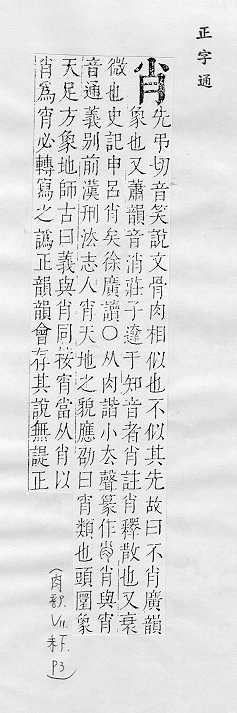 正字通
肖先弔切音笑說文骨肉相似也不似其先故曰不肖廣韻
象也又蕭韻音消莊子達于知音者肖註肖釋散也又衰
微也史記申呂肖矣徐廣讀○从肉諧小𡗓聲篆作肖與宵
音通義別前漢刑法志人宵天地之貌應劭曰宵類也頭圜象
天足方象地師古曰義與肖同按宵當从肖以
肖爲宵必轉寫之譌正韻韻會存其說無諟正
(肉部
P3)